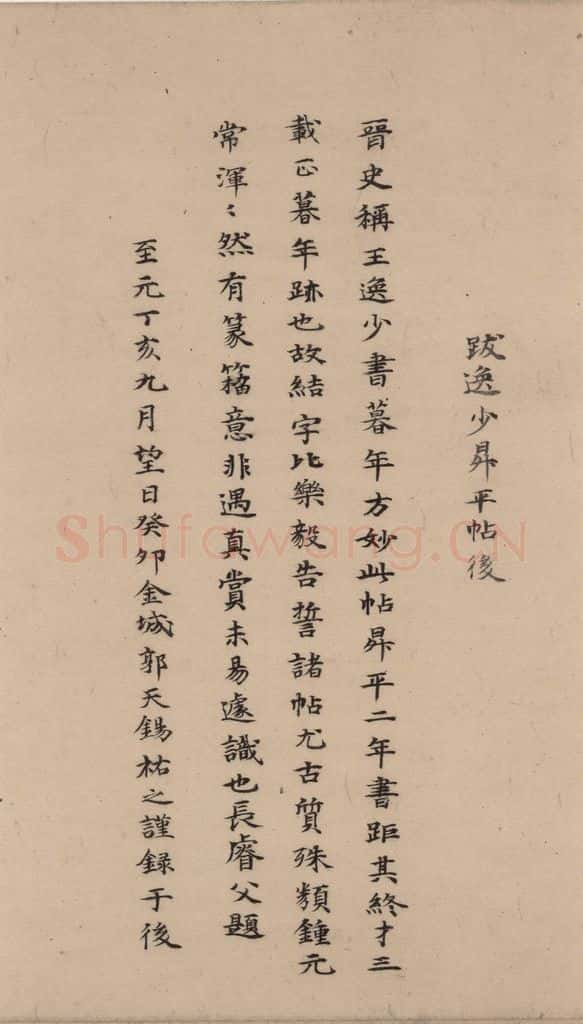 跋逸少昇平帖後
晉史稱王逸少書暮年方妙此帖昇平二年書距其終才三
載正暮年跡也故結字比樂毅告誓諸帖尤古質殊類鍾元
常渾〻然有篆籀意非遇真賞未易遽識也長睿父題
至元丁亥九月望日癸卯金城郭天錫祐之謹錄于後
Shufawang.CN